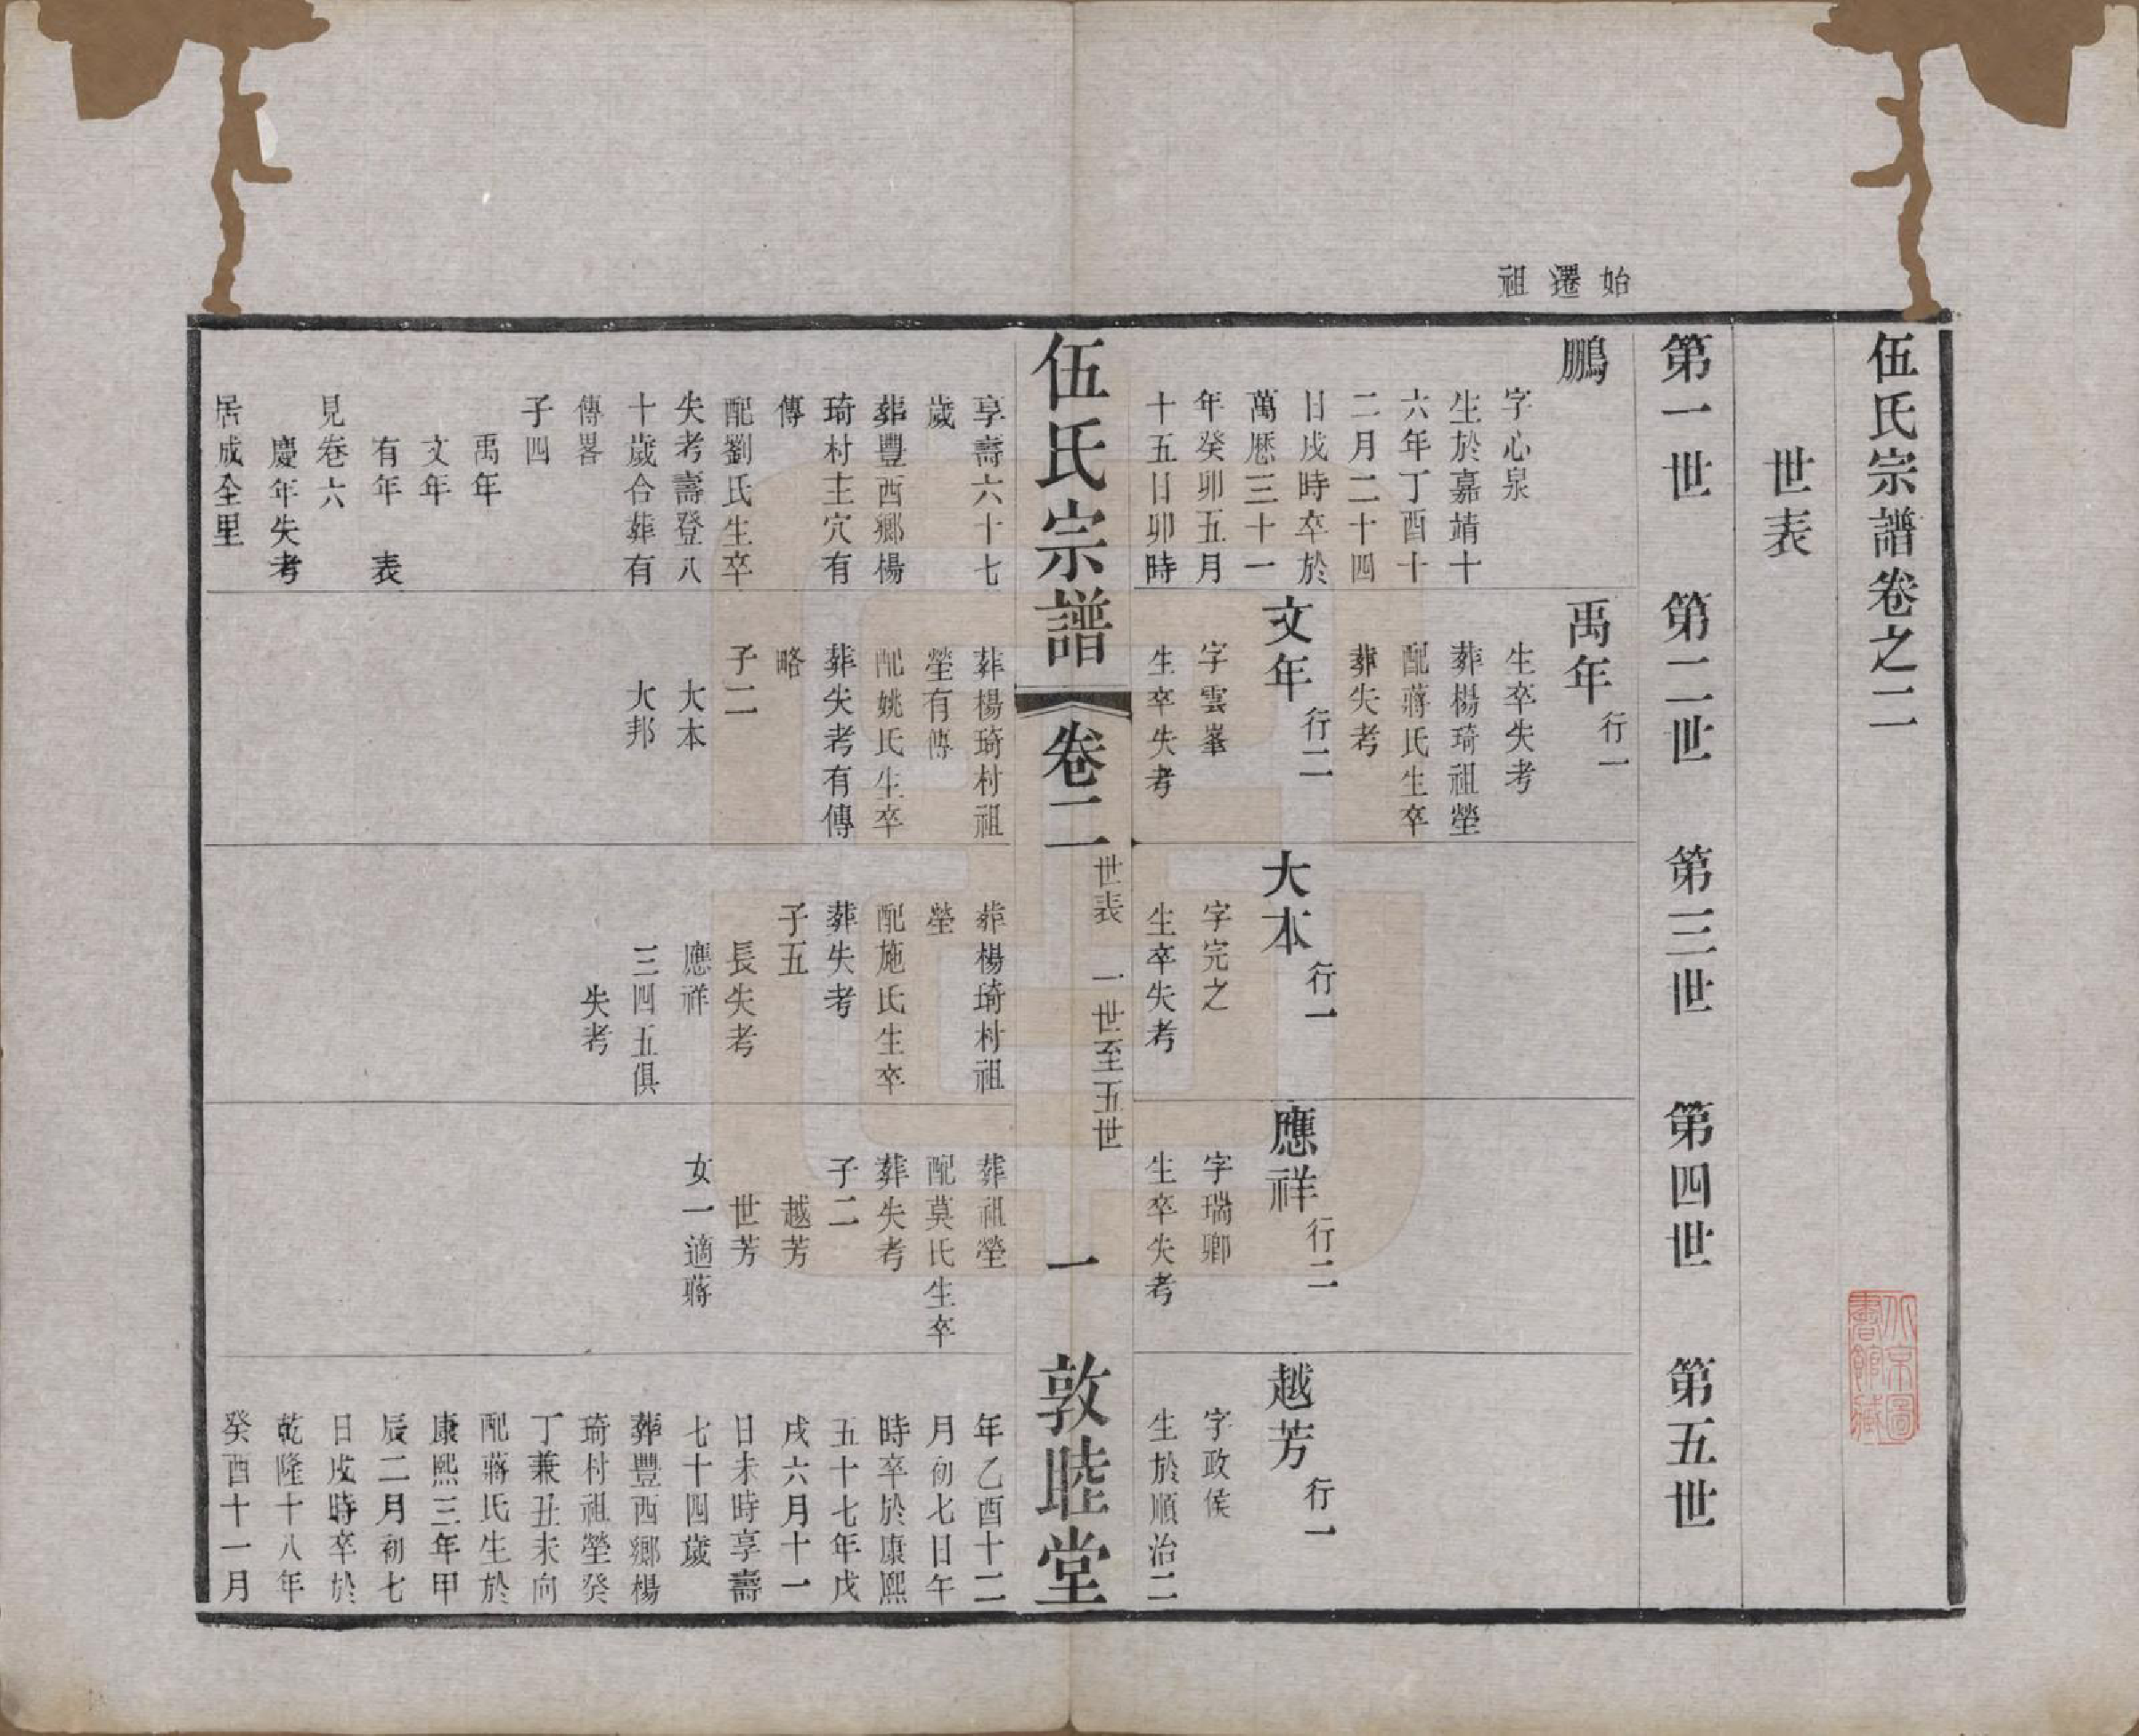 伍氏宗譜卷之二
世表
第一世　第二世　第三世　第四世　第五世
始遷祖
鵬
字心泉
生於嘉靖十
六年丁酉十
二月二十四
日戌時卒於
萬厯三十一
年癸卯五月
十五日卯時
享壽六十七
歲
葬豐西鄉楊
琦村主穴有
傳
配劉氏生卒
失考壽登八
十歲合葬有
傳畧
子四
禹年
文年
有年　表
見卷六
慶年失考
居成全里
禹年行一
生卒失考
葬楊琦祖塋
配蔣氏生卒
葬失考
文年行二
字雲峯
生卒失考
葬楊琦村祖
塋有傳
配姚氏生卒
葬失考有傳
略
子二
大本
大邦
大本行一
字完之
生卒失考
葬楊琦村祖
塋
配施氏生卒
葬失考
子五
長失考
應祥
三四五俱
失考
應祥行二
字瑞卿
生卒失考
葬祖塋
配莫氏生卒
葬失考
子二
越芳
世芳
女一適蔣
越芳行一
字政侯
生於順治二
年乙酉十二
月初七日午
時卒於康熙
五十七年戊
戌六月十一
日未時享壽
七十四歲
葬豐西鄉楊
琦村祖塋癸
丁兼丑未向
配蔣氏生於
康熙三年甲
辰二月初七
日戌時卒於
乾隆十八年
癸酉十一月
伍氏宗譜
卷二
世表　一世至五世
一
敦睦堂
北京圖書館藏